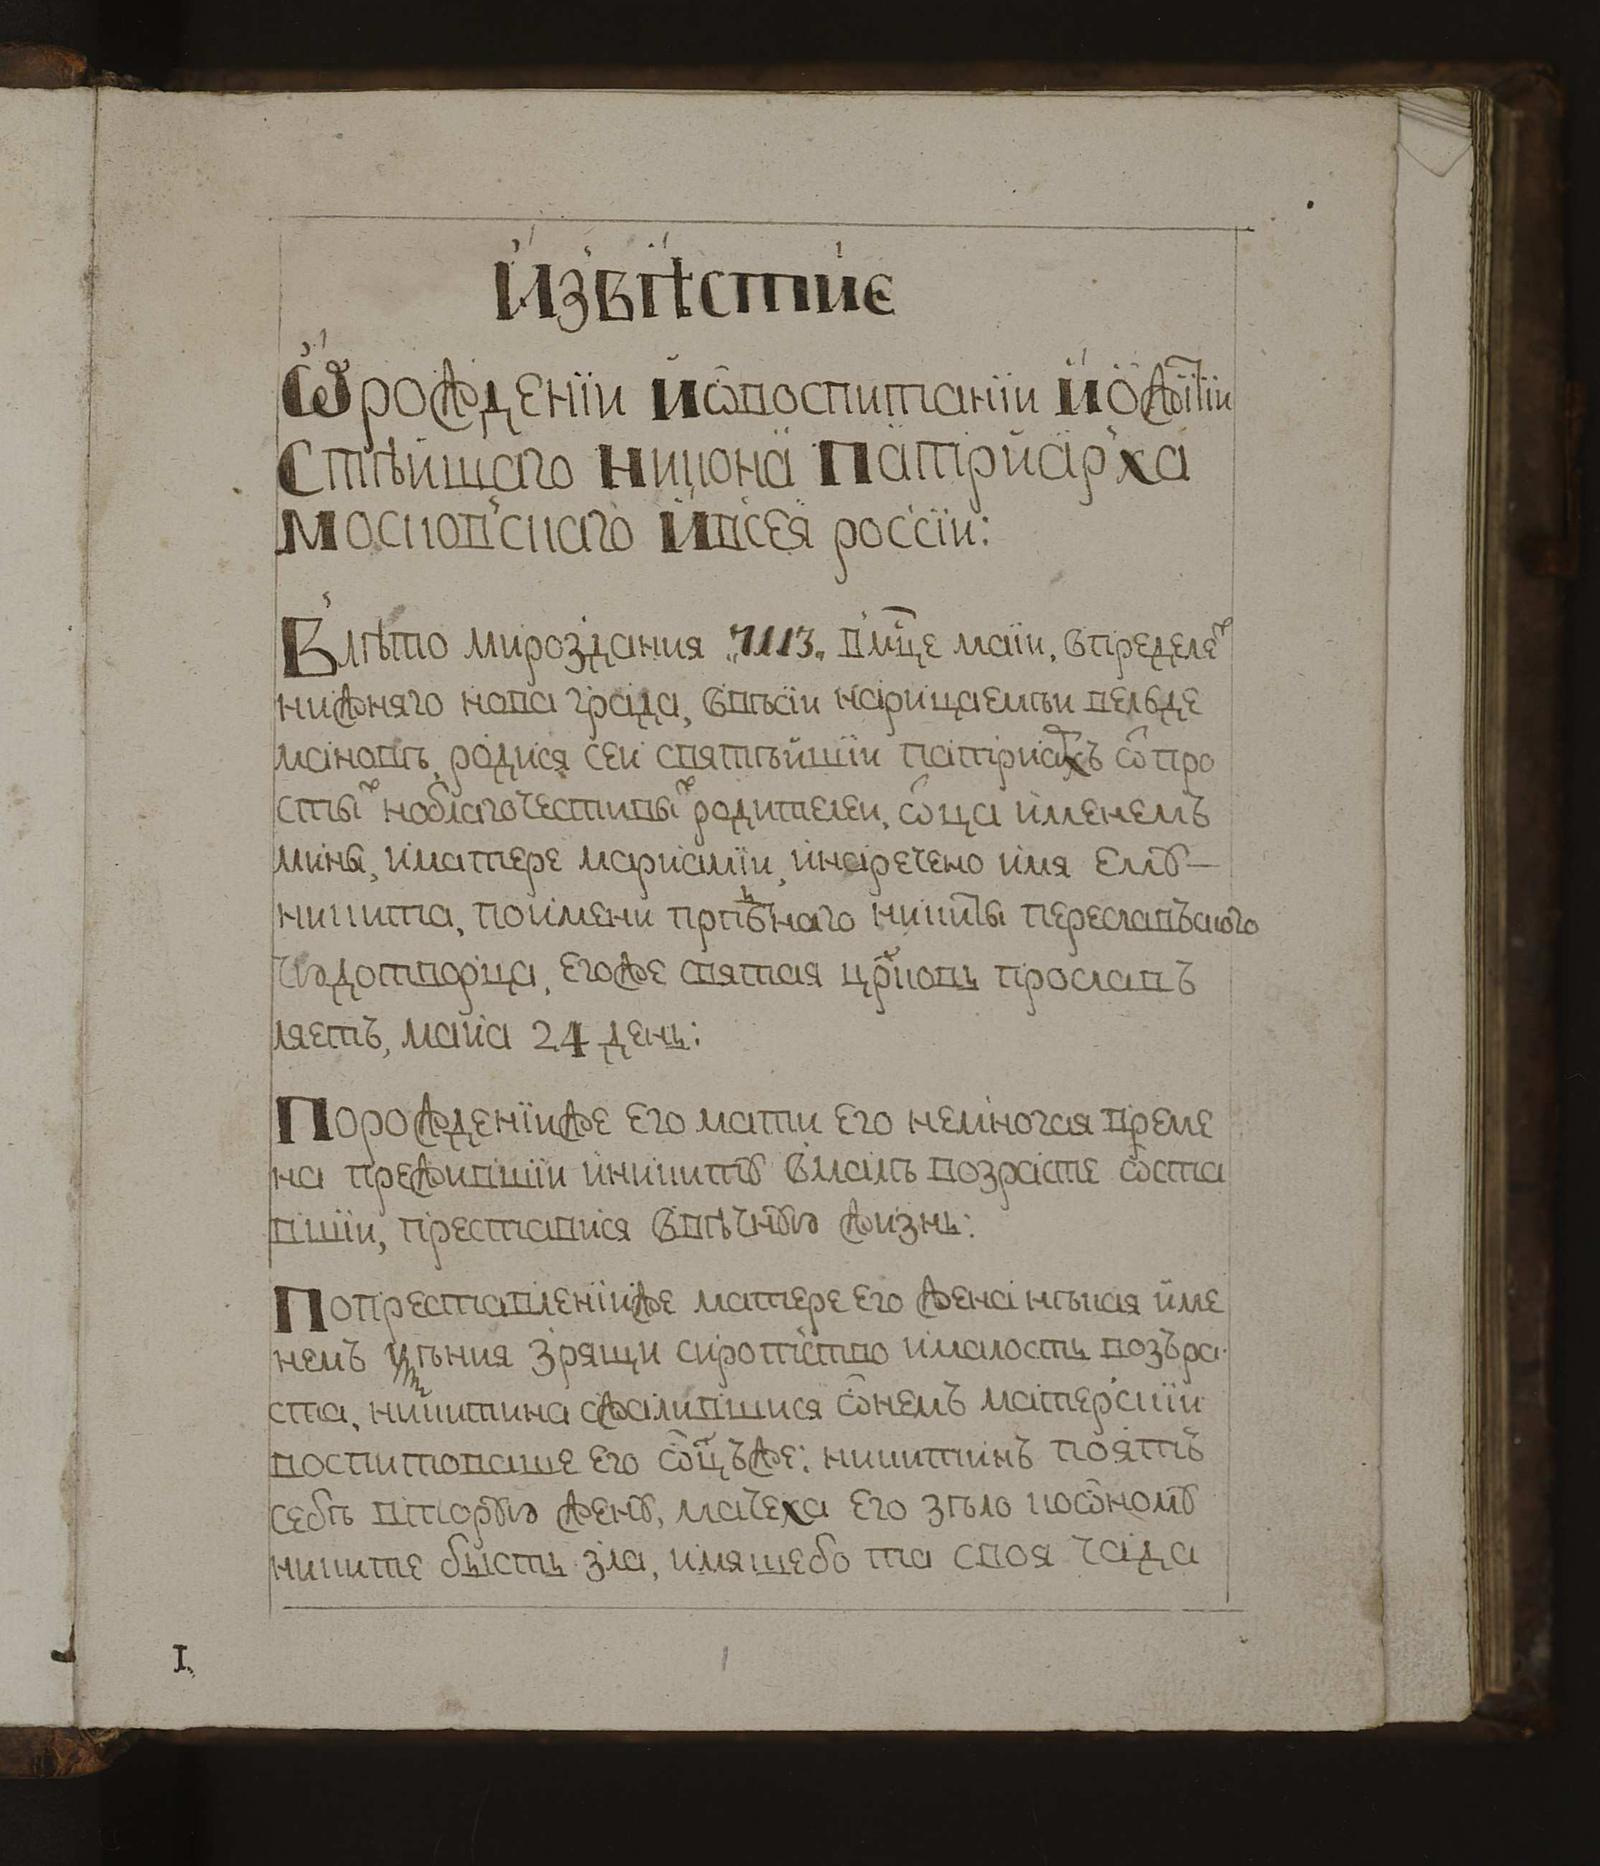 Извѣстие
Ѡ рождении и ѡ воспитании и о житии
Стѣйшаго Никона Патриарха
Московскаго и всея россїи:
В лѣто мироздания „7113„ в мцⷭ҇е маїи, в пределеⷯ
нижняго нова града, в вѣси нарицаемѣи велде
мановѣ, родися сеи святѣйшїи патриаⷬ҇хъ ѿ про
стыⷯ но благочестивыⷯ родителеи, ѿца именемъ
мины, и матере мариамїи, и наречено имя ему
никита, по имени прпⷣбнаго никиты переславъскаго
чудотворца, егоже святая црⷪ҇ковь прославъ
ляетъ, маиа 24 день:
По рождениї же его мати его не многая време
на преживши и никиту в малѣ возрасте ѡста
вшїи, преставися в вѣчную жизнь:
По преставлениї же матере его жена нѣкая име
немъ зрящи сиротство и малость возъра
ста, никитина сжалившися ѡ немъ матерскїи
воспитоваше его ѿцъ же: никитинъ поятъ
себѣ вторую жену, мачеха его зѣло ко ѡному
никите бысть зла, имяше бо та своя чада
I.